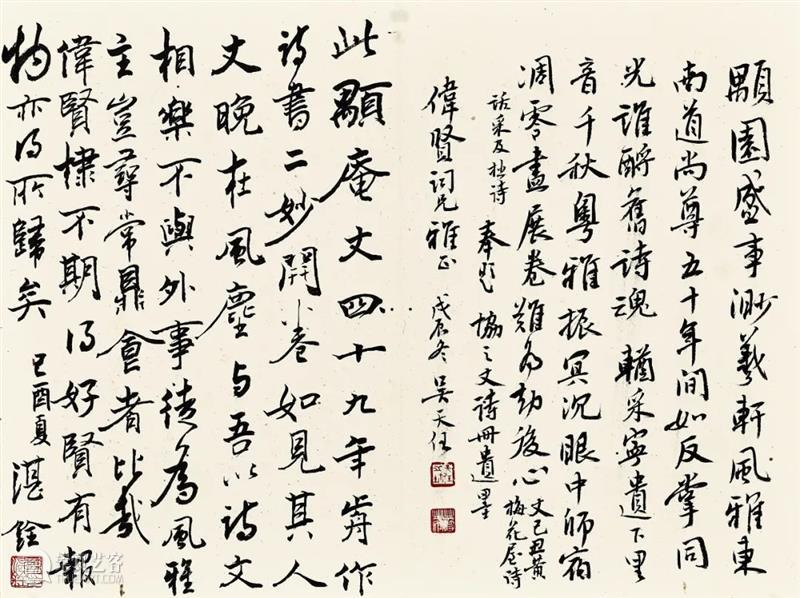 顒園盛事渺羲軒風雅東
南道尚尊五十年間如反掌同
光誰酹舊詩魂 輶采寧遺下里
音千秋粵雅振冥沉眼中師宿
凋零盡展卷難為劫後心 丈己丑黃梅花屋詩
話采及拙詩 奉題 協之丈詩冊遺墨
偉賢詞兄雅正 戊辰冬 吳天任
此顒庵丈四十九年前作
詩書二妙開卷如見其人
丈晚在風塵与吾以詩文
相樂不與外事徒為風雅
主豈尋常鼎食者比哉
偉賢棣不期得好賢有報
物亦得所歸矣 己酉夏 湛銓